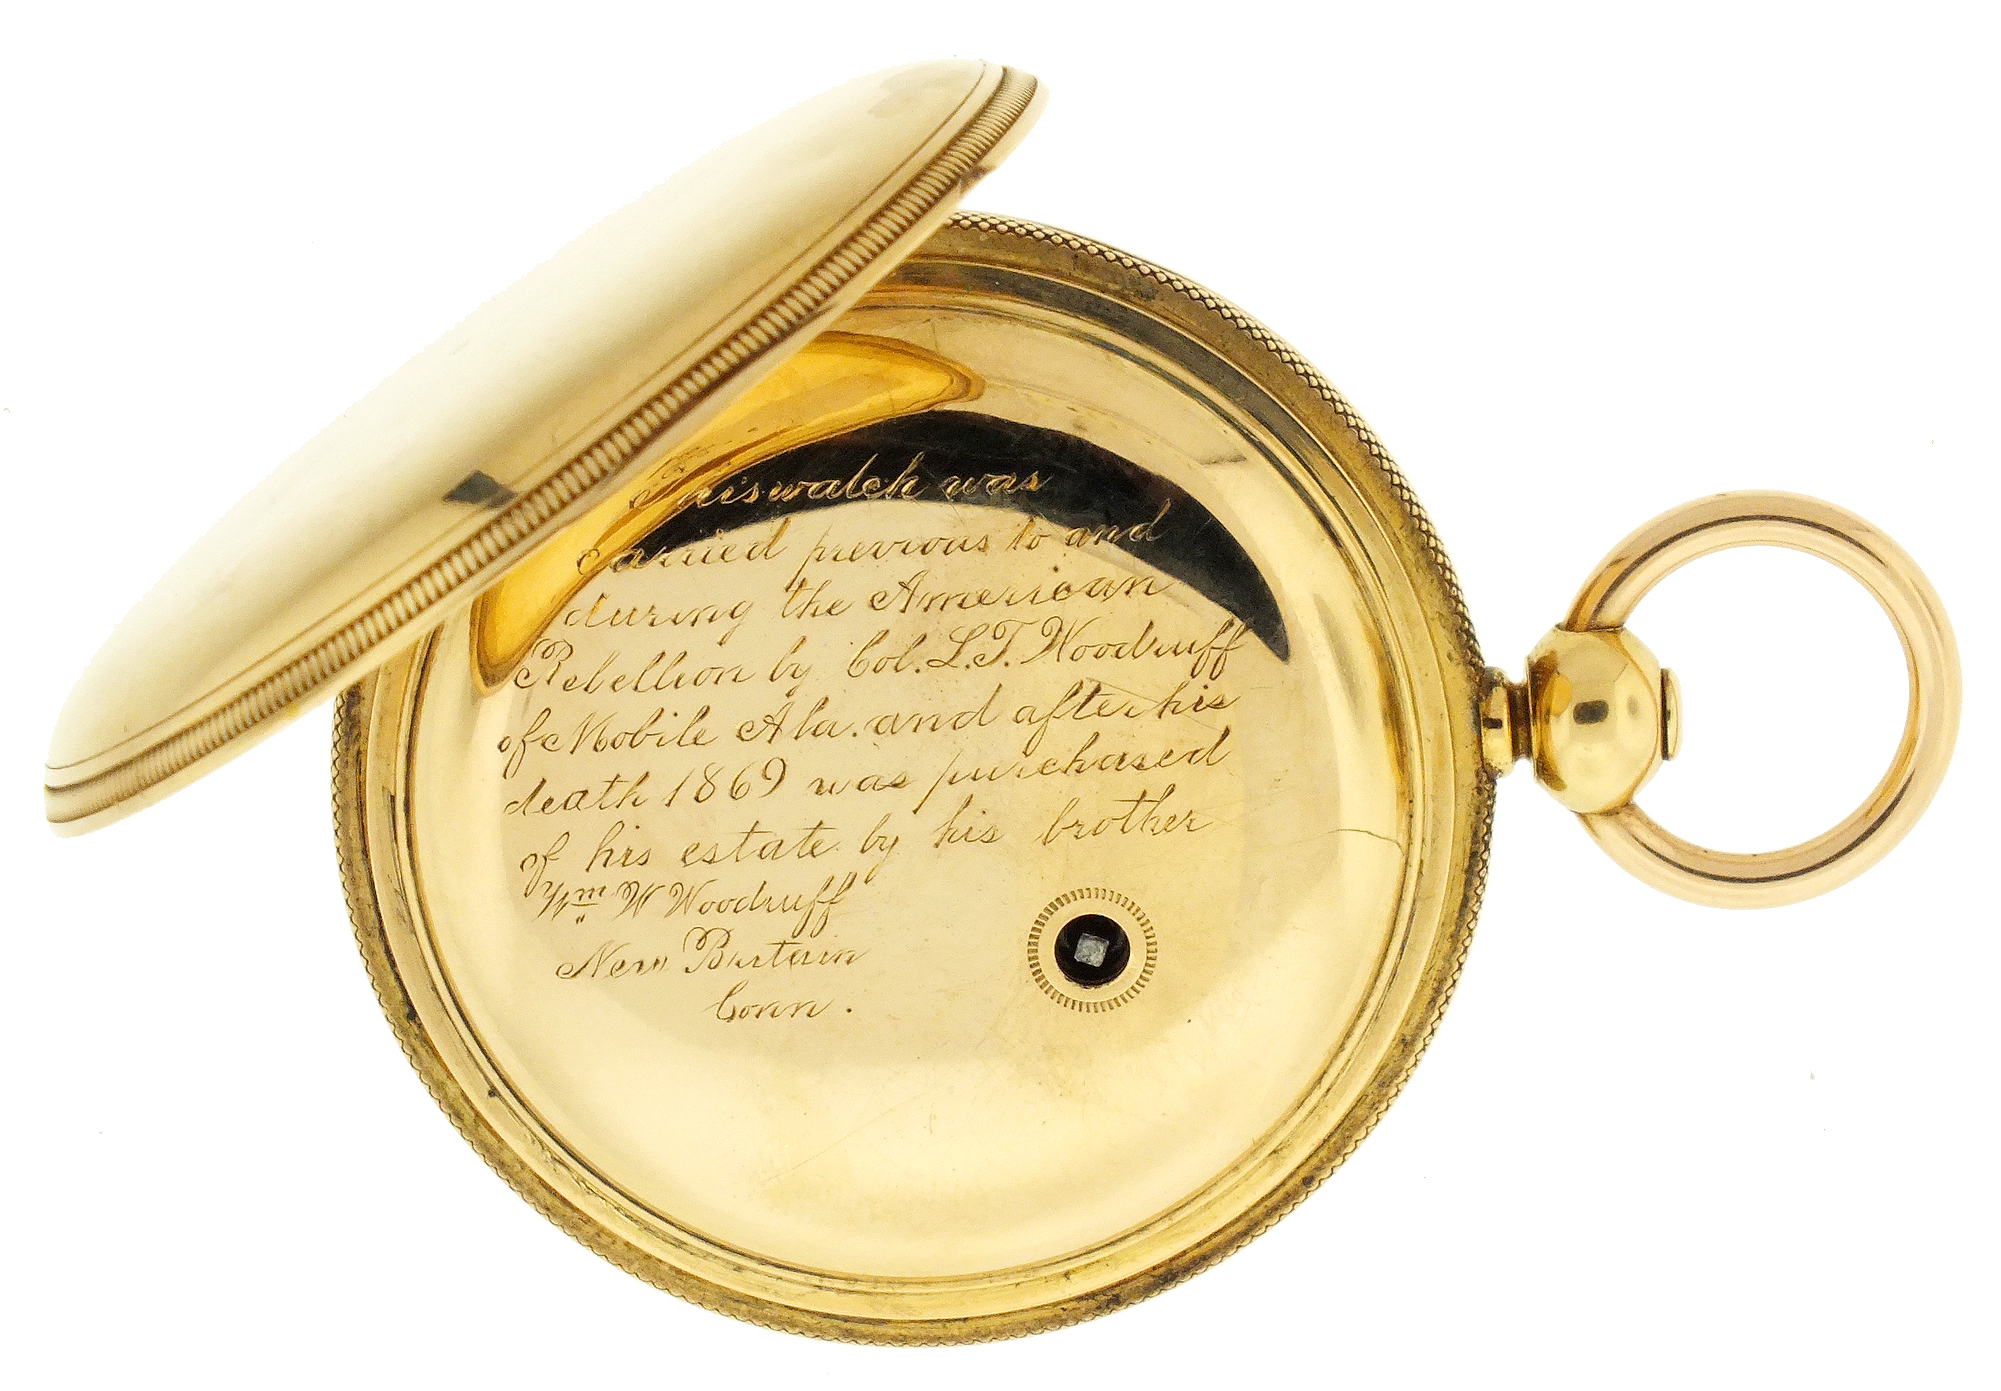 This watch was
carried previous to and
during the American
Rebellion by Col. L.T. Woodruff
of Mobile Ala. and after his
death 1869 was purchased
of his estate by his brother
Wm W Woodruff
New Britain
Conn.